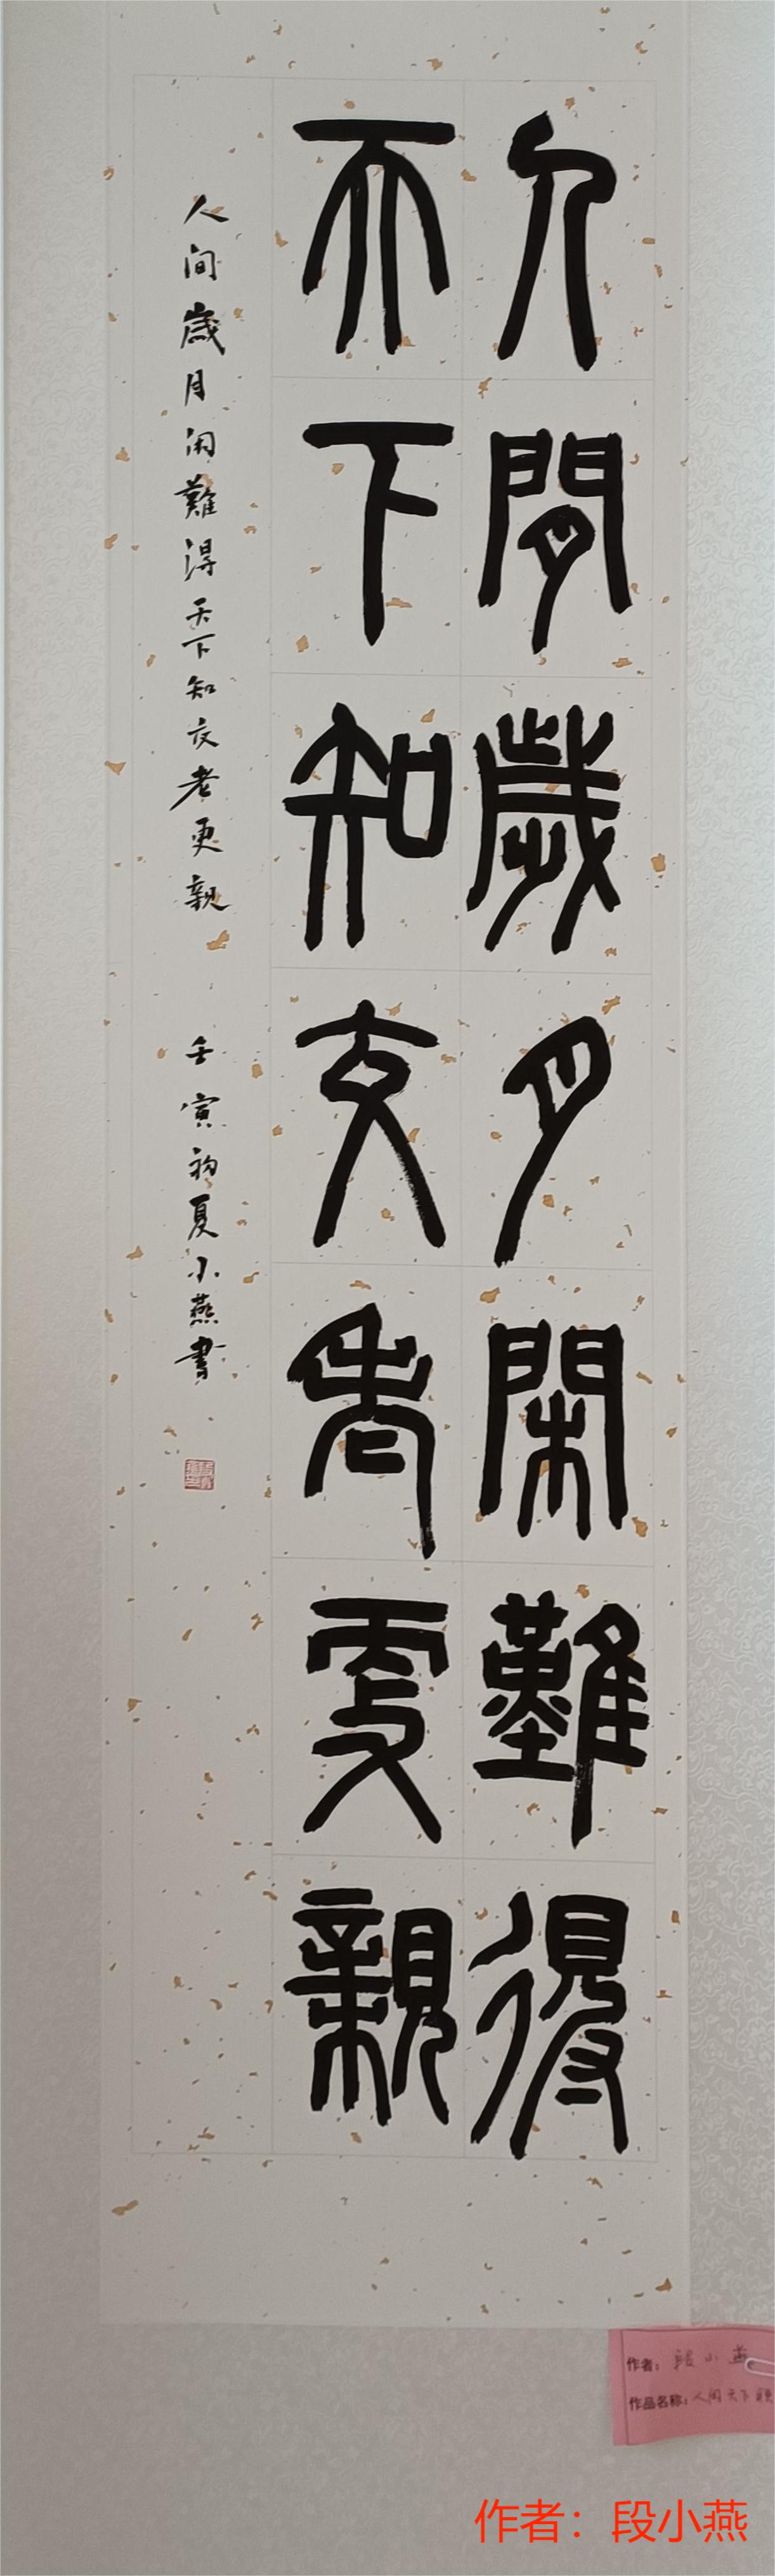 人閒歲月閑難得
天下知交老更親
人间歲月闲難得天下知友老更親 壬寅初夏小燕書
作者：段小燕
作品名称：人间天下
作者：段小燕